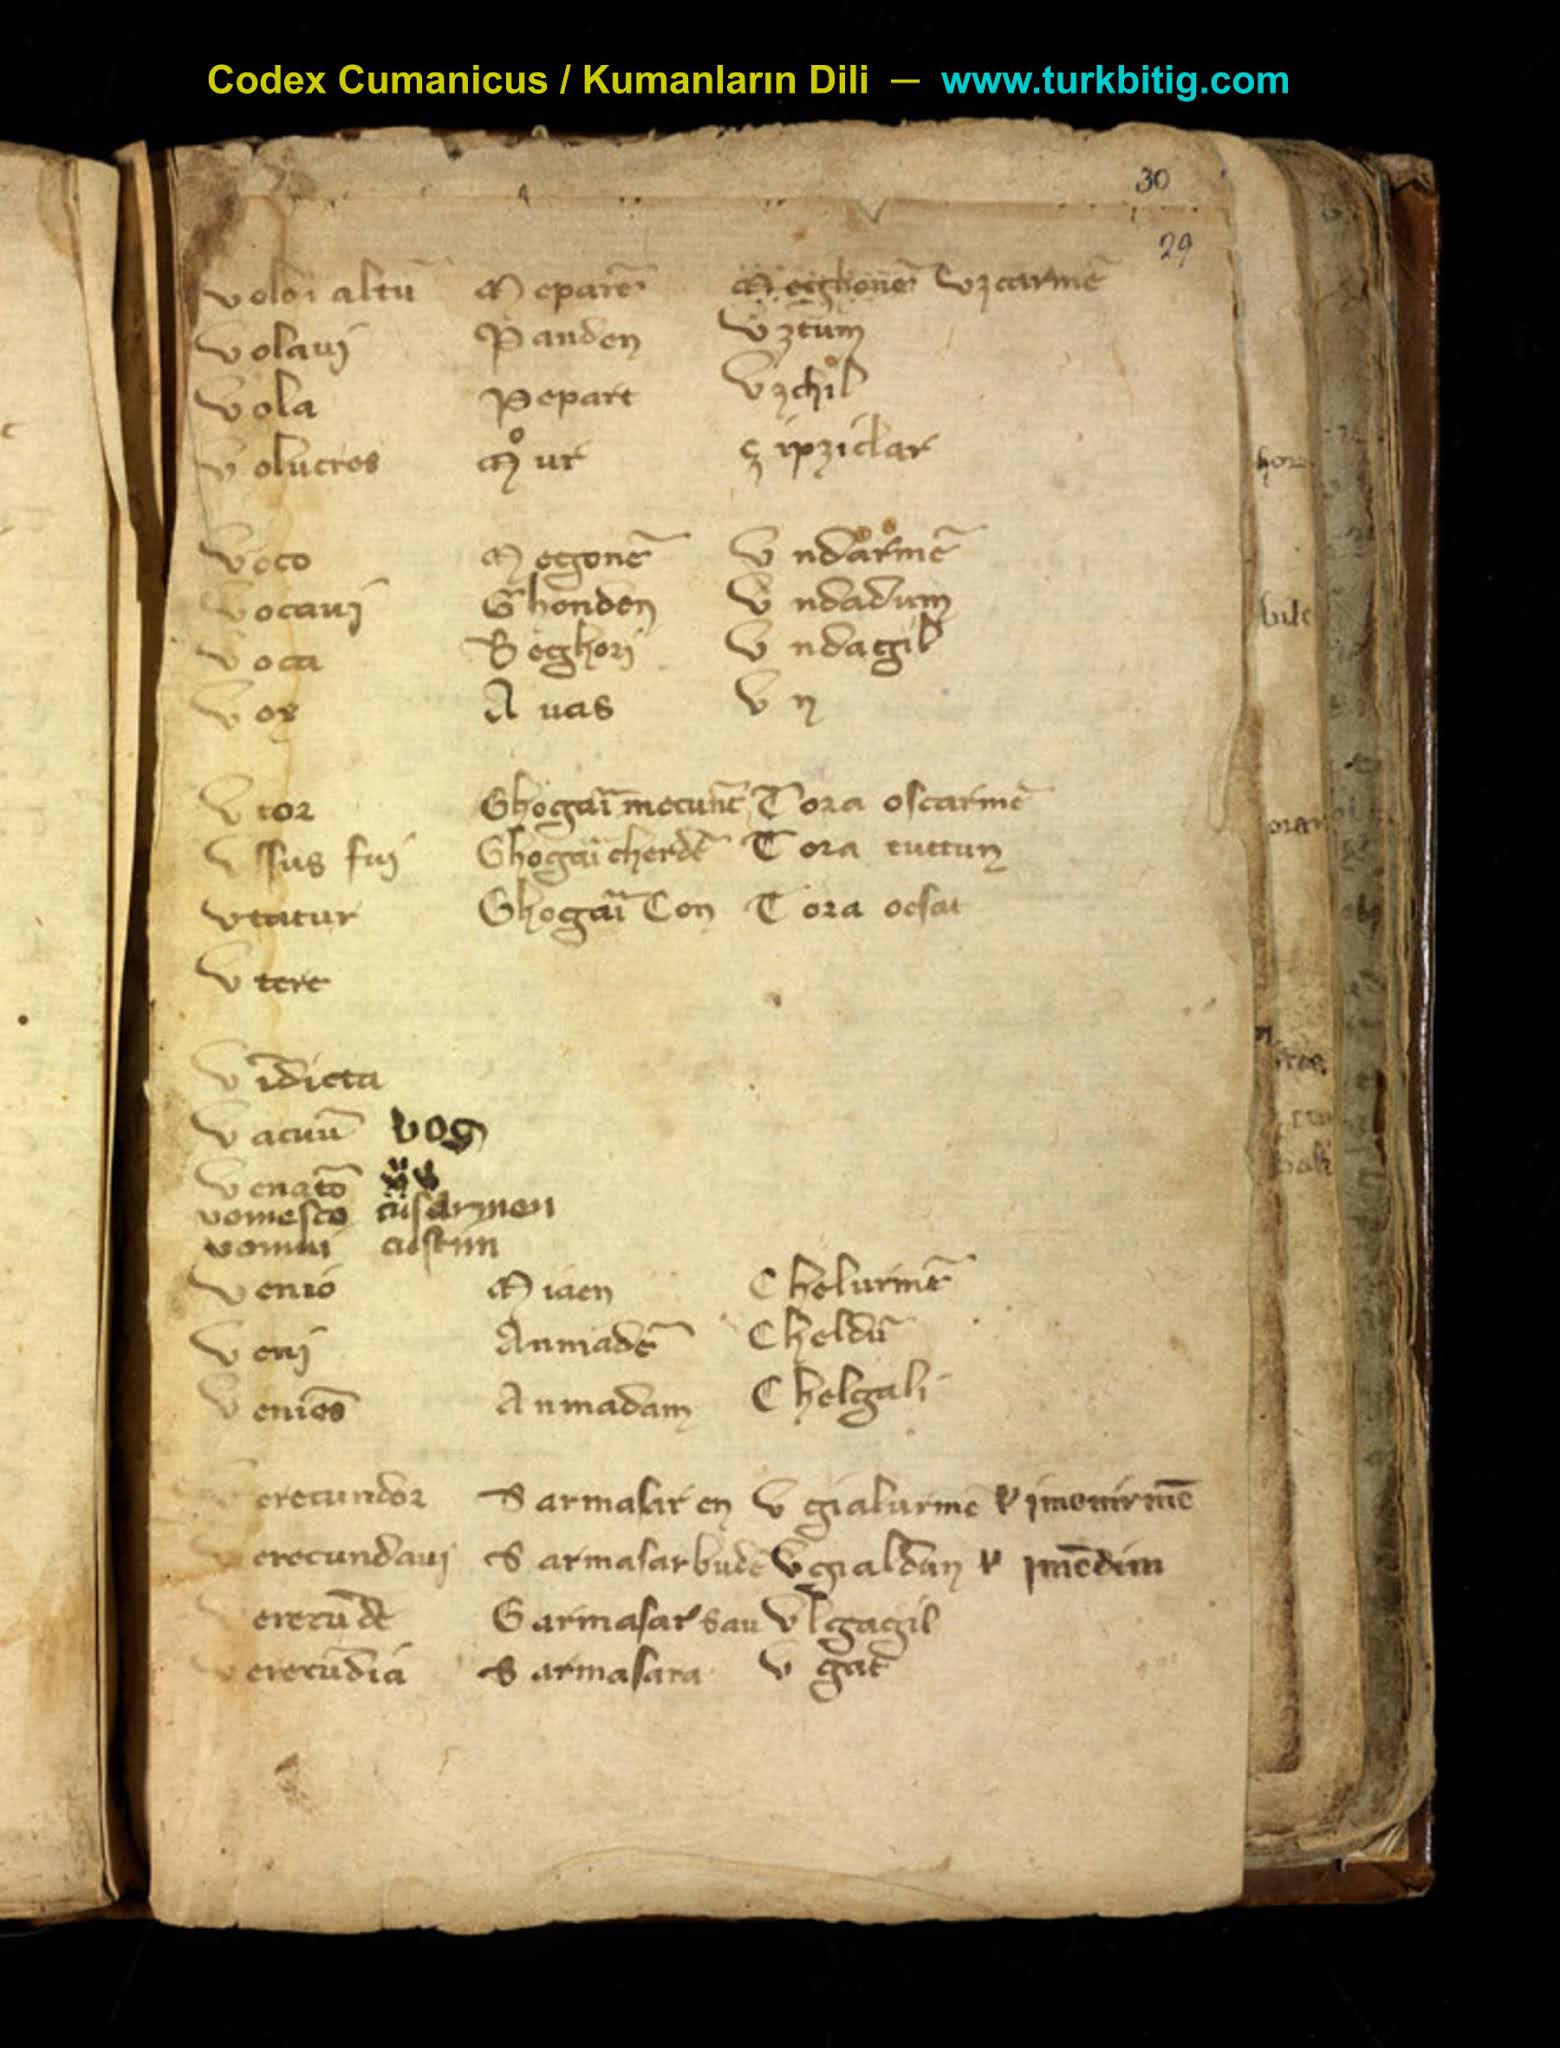 Codex Cumanicus / Kumanların Dili — www.turkbitig.com
30
29
Volo i altũ Meparẽ Meghonẽ Vzcarmẽ
Volaui Panden Vztum
Vola Pepart Vzchil
Volucres Mur çipziclar
Voco Megonẽ Vndarmẽ
Vocauj Ghonden Vndadum
Voca Beghorj Vndagil
Vox Auas Vn
Vtor Ghogaĩ mecunẽ Tora oscarmẽ
Vssus fuj Ghogai cherdẽ Tora tuttum
Vtatur Ghogaĩ Con Tora ocsat
Vtere
Vĩdicta
Vacuũ bog
Venatõ
vomesco cusarmen
vomui custim
Venio Miaen Chelurmẽ
Venj Anmadẽ Cheldũ
Veniẽs Anmadam Chelgali
Verecundor Sarmasar en Vgialurmẽ ł imenirmẽ
Verecundauj Sarmasar budẽ Vgialdũ ł imẽdim
Verecũde Sarmasar sau Vlgagil
Verecũdia Sarmasara Vgat